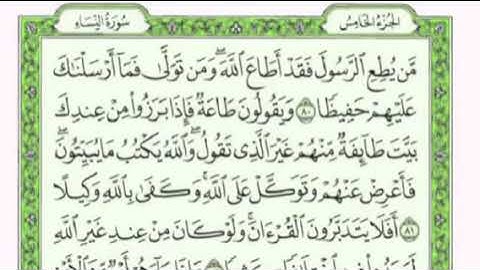 الجزء الخامس
سورة النساء
مَّن يُطِعِ ٱلرَّسُولَ فَقَدْ أَطَاعَ ٱللَّهَ ۖ وَمَن تَوَلَّىٰ فَمَآ أَرْسَلْنَٰكَ
عَلَيْهِمْ حَفِيظًا ٨٠ وَيَقُولُونَ طَاعَةٌ فَإِذَا بَرَزُوا۟ مِنْ عِندِكَ
بَيَّتَ طَآئِفَةٌ مِّنْهُمْ غَيْرَ ٱلَّذِى تَقُولُ ۖ وَٱللَّهُ يَكْتُبُ مَا يُبَيِّتُونَ ۖ
فَأَعْرِضْ عَنْهُمْ وَتَوَكَّلْ عَلَى ٱللَّهِ ۚ وَكَفَىٰ بِٱللَّهِ وَكِيلًا
٨١ أَفَلَا يَتَدَبَّرُونَ ٱلْقُرْءَانَ ۚ وَلَوْ كَانَ مِنْ عِندِ غَيْرِ ٱللَّهِ